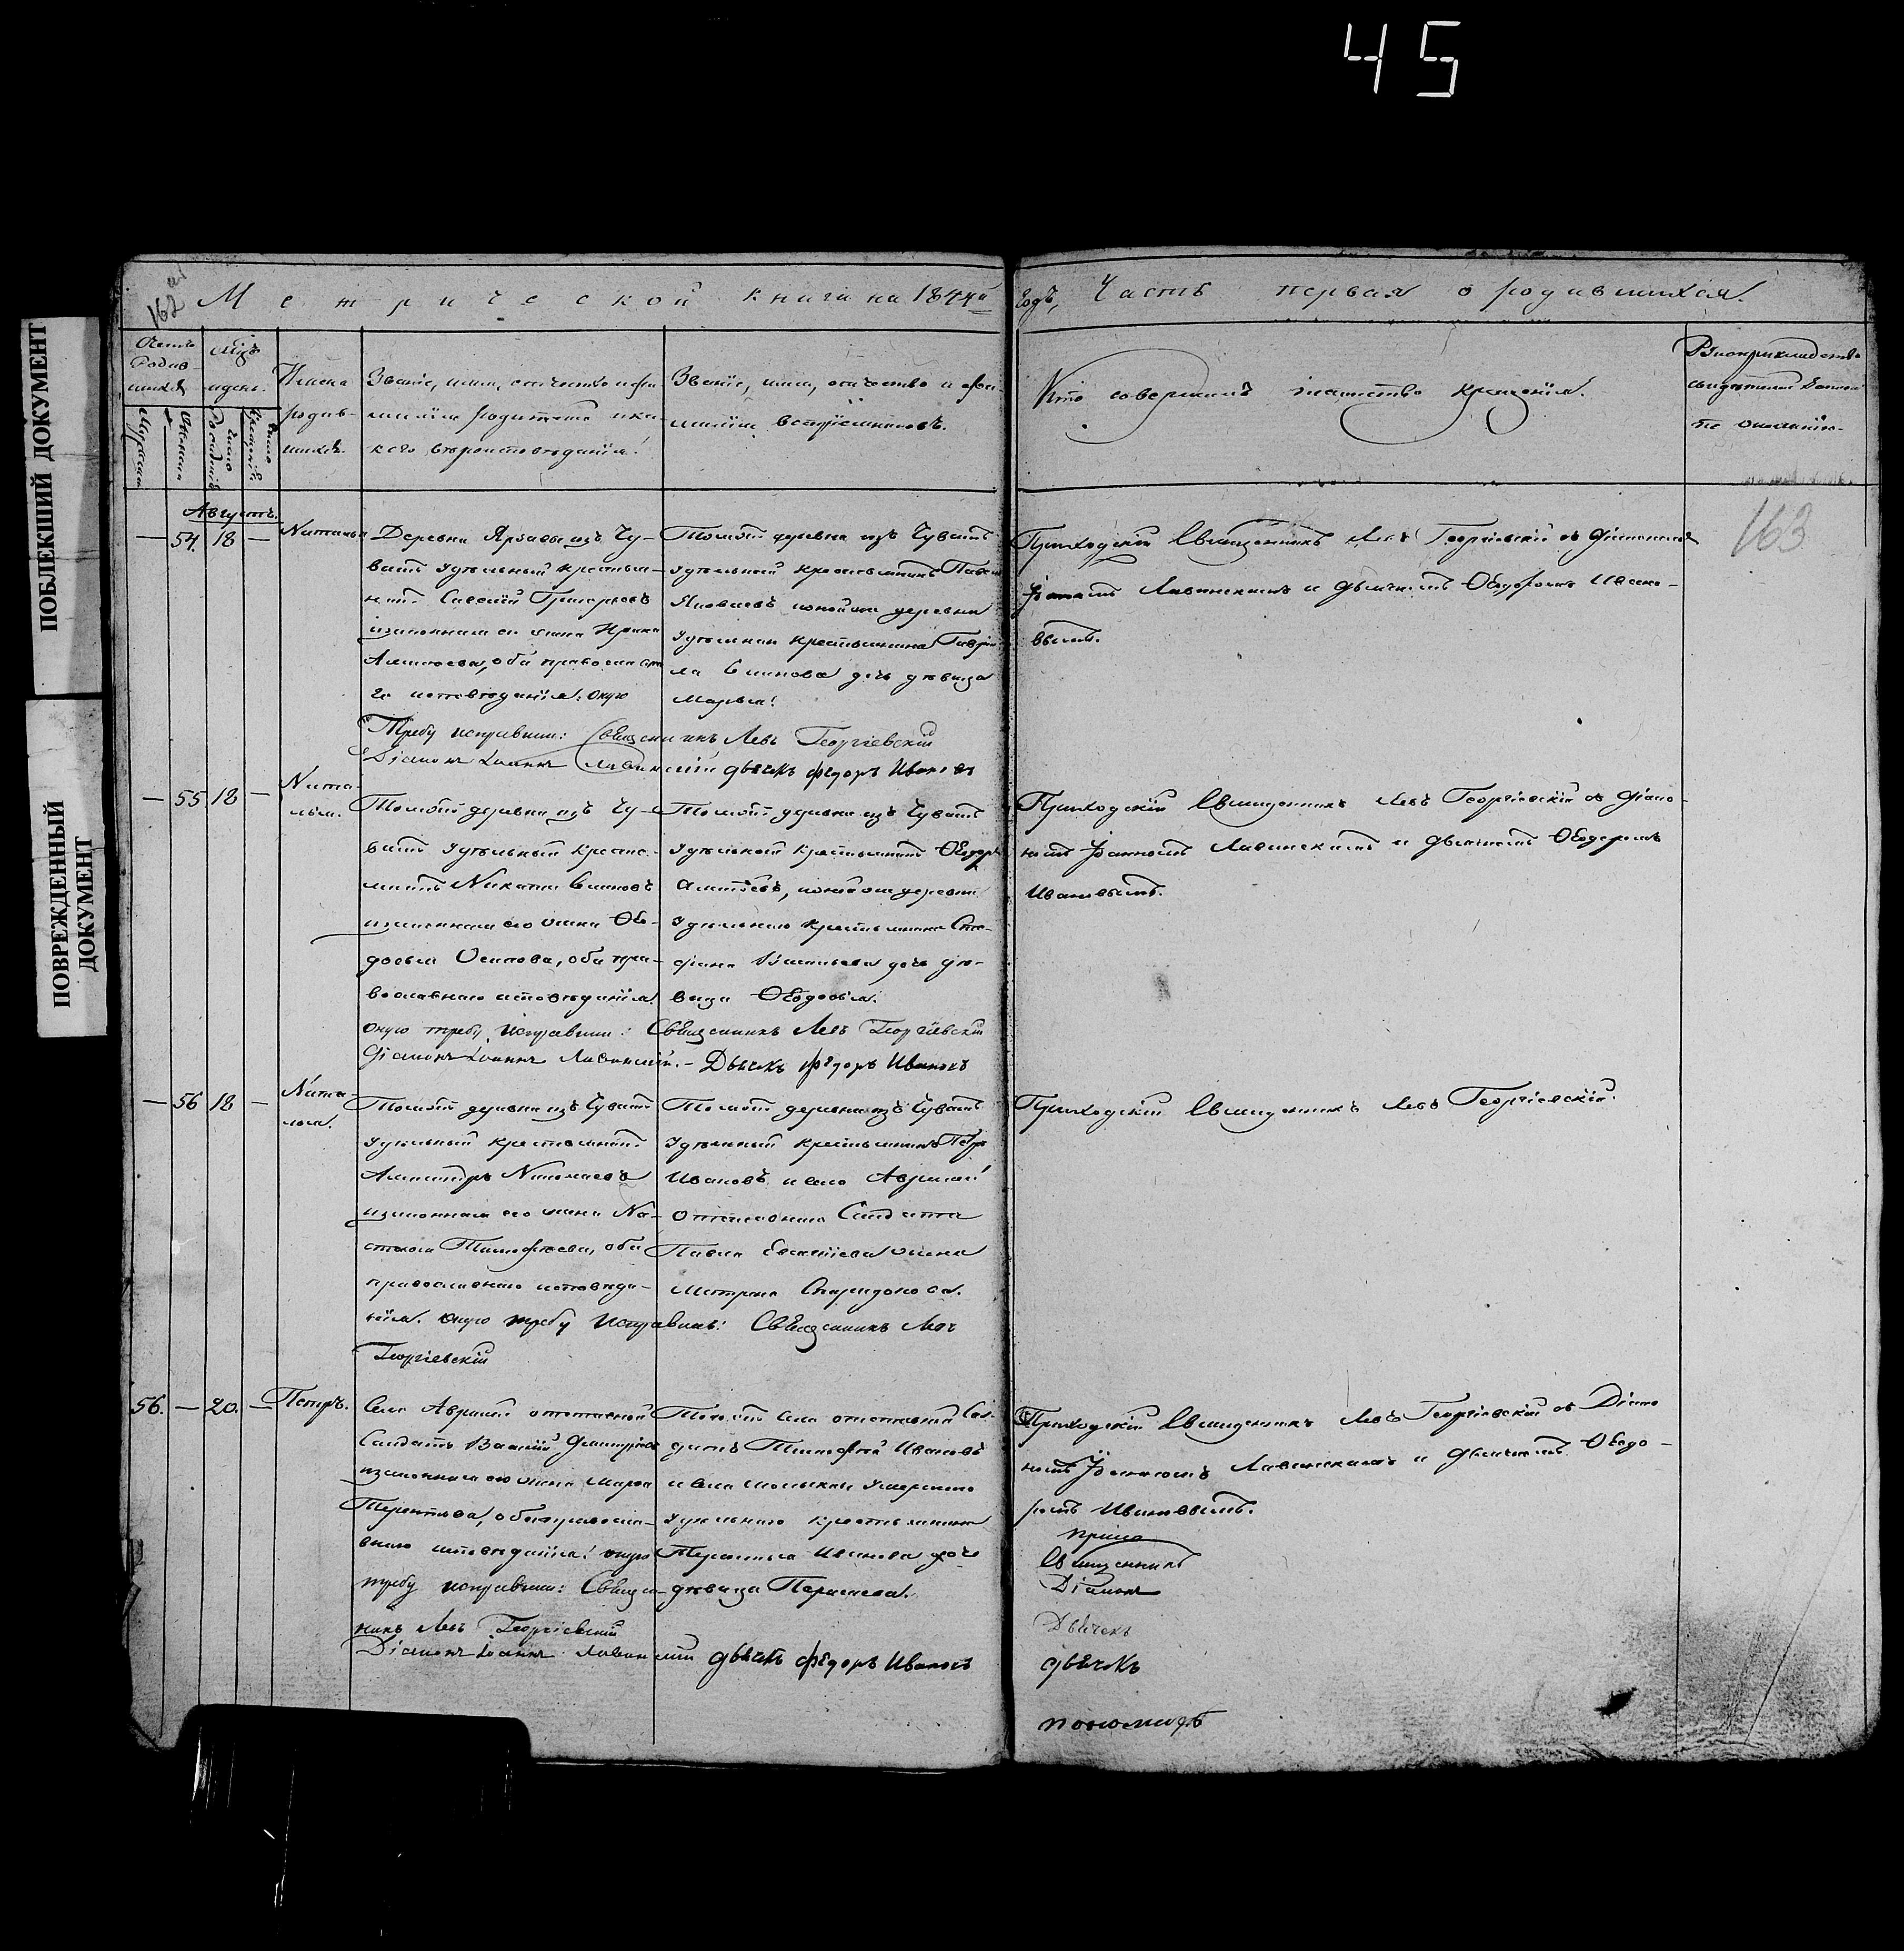 45
ПОБЛЕКШИЙ ДОКУМЕНТ
ПОВРЕЖДЕННЫЙ
ДОКУМЕНТ
162
Метрической книги на 1844й
годъ, Часть первая о родившихся.
Счетъ
родив-
шихся
Мужеска
Женска
Мѣц.
и день.
Число
Рожденія
Число
Крещенія
Имена
родив-
шихся.
Званіе, имя, отчество и фа-
милія родителей и ка-
кого вѣроисповѣданія.
Званіе, имя, отчество и фа-
милія воспріемниковъ.
Кто совершалъ таинство крещенія.
Рукоприкладство
свидѣтелей записи
по желанію.
163
Августъ.
— 54. 18 —
Наталья
Деревни из Чу-
вашъ удѣльный крестья-
нинъ Григорьевъ
и законная его жена Ирина
оба православна-
го исповѣданія: оную
Требу исправили: Священникъ Левъ Георгіевскій
Діаконъ Іоаннъ Лавинскій дьячекъ Фѣдоръ Ивановъ
Той же деревни изъ Чувашъ
удѣльный крестьянинъ Павелъ
Яковлевъ и той же деревни
удѣльнаго крестьянина Гаври-
ла Семенова дочь дѣвица
Марья.
Приходскій Священникъ Левъ Георгіевскій съ Діакономъ
Іоанномъ Лавинскимъ и дьячкомъ Ѳеодоромъ Ивано-
вымъ.
— 55. 18 —
Ната-
лья.
Той же деревни изъ Чу-
вашъ удѣльный кресть-
янинъ Никита Семеновъ
и законная его жена Ѳе-
досья Осипова, оба пра-
вославнаго исповѣданія.
оную требу исправили: Священникъ Левъ Георгіевскій
Діаконъ Іоаннъ Лавинскій. — Дьячекъ Фѣдоръ Ивановъ
Той же деревни изъ Чувашъ
удѣльный крестьянинъ Ѳеодоръ
и той же деревни
удѣльнаго крестьянина Сте-
фана Васильева дочь дѣ-
вица Ѳеодосія.
Приходскій Священникъ Левъ Георгіевскій съ Діако-
номъ Іоанномъ Лавинскимъ и дьячкомъ Ѳеодоромъ
Ивановымъ.
— 56 18 —
Ната-
лья.
Той же деревни изъ Чувашъ
удѣльный крестьянинъ
Александръ Николаевъ
и законная его жена На-
стасья Тимофеева, оба
православнаго исповѣда-
нія. оную требу исправилъ: Священникъ Левъ
Георгіевскій
Той же деревни изъ Чувашъ
удѣльный крестьянинъ Петръ
Ивановъ и села Авралей
отставнаго Солдата
Павла жена
Матрена Спиридонова.
Приходскій Священникъ Левъ Георгіевскій.
56. — 20. —
Петръ.
Села Авралей отставной
Солдатъ Василій Дмитріевъ
и законная его жена Марѳа
Терентьева, оба православ-
наго исповѣданія! оную
требу исправили: Священ-
никъ Левъ Георгіевскій
Діаконъ Іоаннъ Лавинскій дьячекъ Фѣдоръ Ивановъ
Того же села отставной Сол-
датъ Тимофей Ивановъ
и села умершаго
удѣльнаго крестьянина
Терентья Иванова дочь
дѣвица
Приходскій Священникъ Левъ Георгіевскій съ Діако-
номъ Іоанномъ Лавинскимъ и дьячкомъ Ѳеодо-
ромъ Ивановымъ.
Священникъ
Діаконъ
Дьячекъ
дьячекъ
пономарь